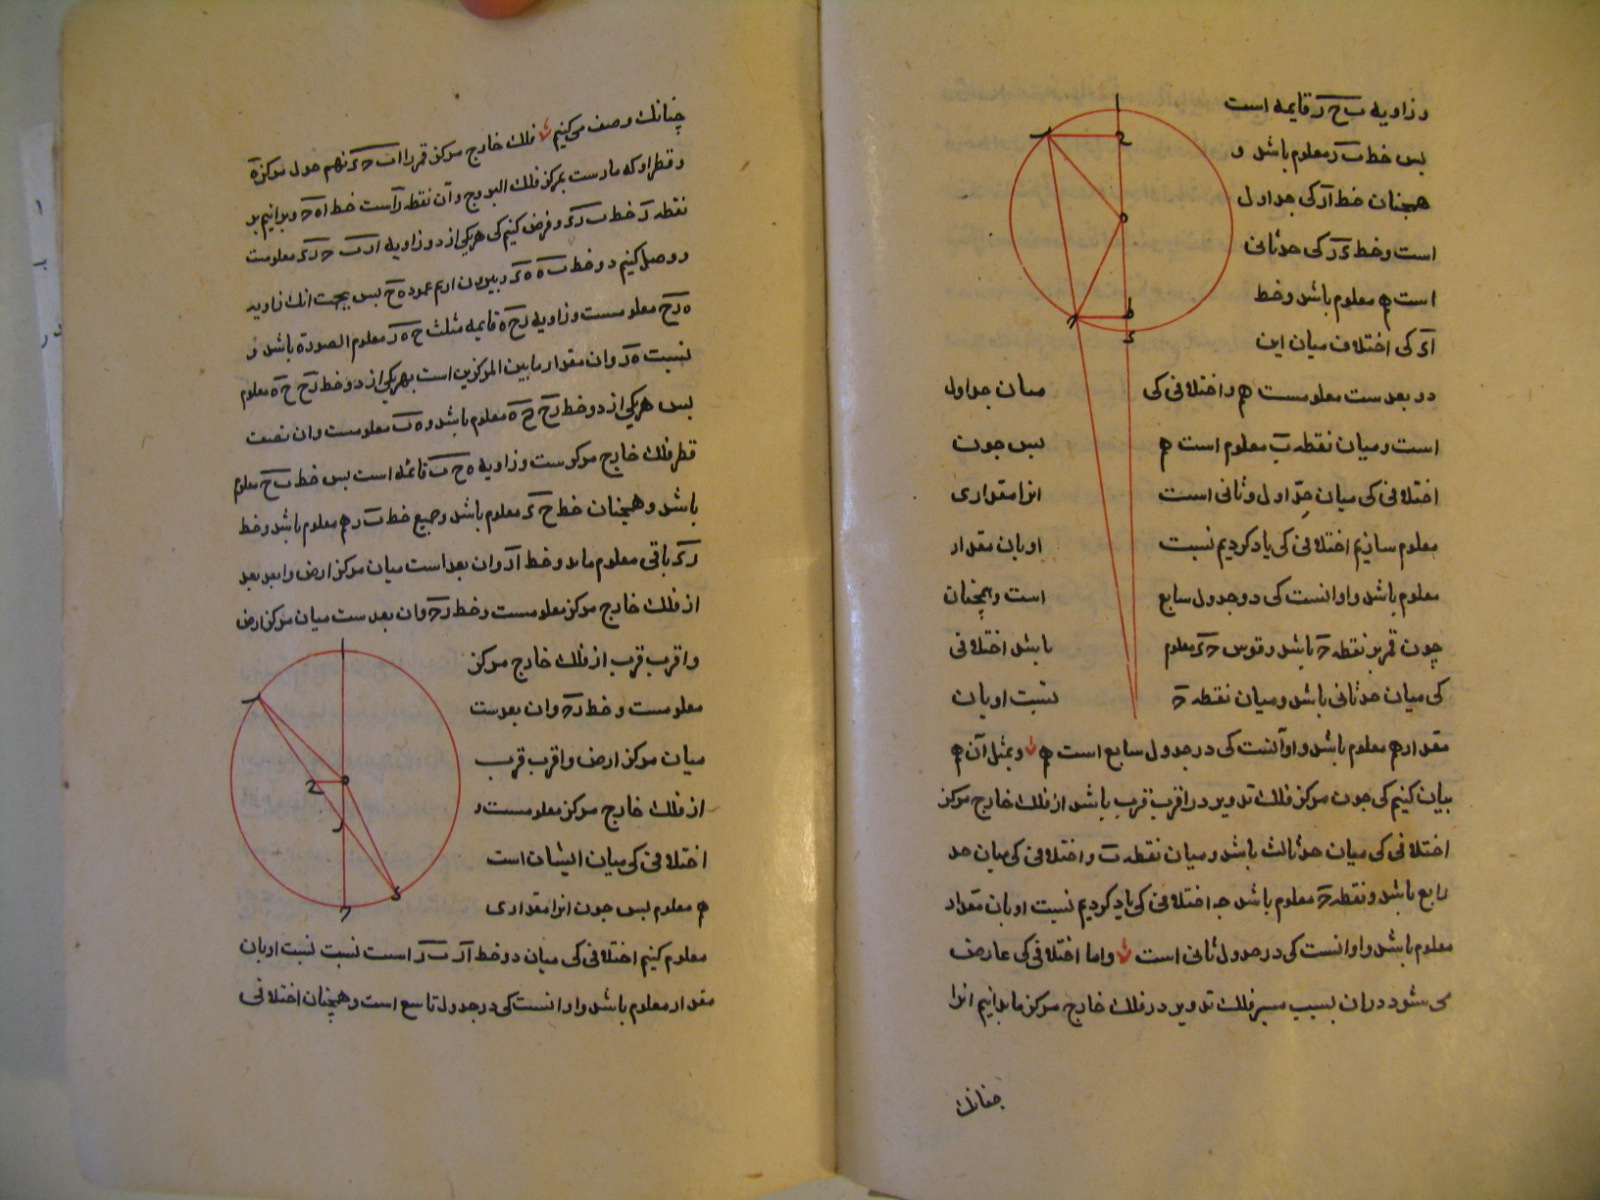 و زاویه ب ح ر قایمه است
بس خط ب ر معلوم باشد و
همچنان خط ار کی جد اول
است و خط ی ر کی حد ثانی
است هم معلوم باشد و خط
ای کی اختلاف میان این
دو بعدست معلومست هم و اختلافی کی میان جد اول
است و میان نقطه ب معلوم است هم بس جون
اختلافی کی میان حد اول و ثانی است انرا مقداری
معلوم سازیم اختلافی کی یاد کردیم نسبت او بان مقدار
معلوم باشد و او انست کی در جدول سابع است و همچنان
چون قمر بر نقطه ح باشد و قوس ح ی معلوم باشد اختلافی
کی میان حد ثانی باشد و میان نقطه ح نسبت او بان
مقدار هم معلوم باشد و او آنست کی در جدول سابع است هم و بمثل آن هم
بیان کنیم کی جون مرکز فلک تدویر در اقرب قرب باشد از فلک خارج مرکز
اختلافی کی میان حد ثالث باشد و میان نقطه ب و اختلافی کی میان حد
رابع باشد و نقطه ح معلوم باشد جه اختلافی کی یاد کردیم نسبت او بان مقدار
معلوم باشد و او انست کی در جدول ثانی است و اما اختلافی کی عارض
می شود در ان بسبب مسیر فلک تدویر در فلک خارج مرکز ما بدانیم انرا
جنانک
چنانک وصف می کنیم فلک خارج مرکز قمر را ا ب ح ی نهم حول مرکز ه
و قطر او که مارست بمرکز فلک البروج و آن نقطه ر است خط ا ه ح و برانیم بر
نقطه ر خط ب ر ی و فرض کنیم کی هریکی از دو زاویه ا ر ب ح ر ی معلومست
و وصل کنیم دو خط ب ه ه ی و بیرون اریم عمود ه ح بس بجهت انک زاویه
ه ر ح معلومست و زاویه ر ح ه قایمه مثلث ح ه ر معلوم الصورة باشد و
نسبت ه ر و ان مقدار مابین المرکزین است بهریکی از دو خط ر ح ح ه معلوم
بس هریکی از دو خط ر ح ح ه معلوم باشد و ه ب معلومست و ان نصف
قطر فلک خارج مرکزست و زاویه ه ح ب قائمه است بس خط ب ح معلوم
باشد و همچنان خط ح ی معلوم باشد و جمیع خط ب ر هم معلوم باشد و خط
ر ی باقی معلوم ماند و خط ا ر و ان بعد است میان مرکز ارض و ابعد بعد
از فلک خارج مرکز معلومست و خط ر ح و ان بعدست میان مرکز ارض
و اقرب قرب از فلک خارج مرکز
معلومست و خط ر ح و ان بعدست
میان مرکز ارض و اقرب قرب
از فلک خارج مرکز معلومست و
اختلافی کی میان ایشان است
هم معلوم بس جون انرا مقداری
معلوم کنیم اختلافی کی میان دو خط ا ر ب ر است نسبت نسبت او بان
مقدار معلوم باشد و او انست کی در جدول تاسع است و همچنان اختلافی